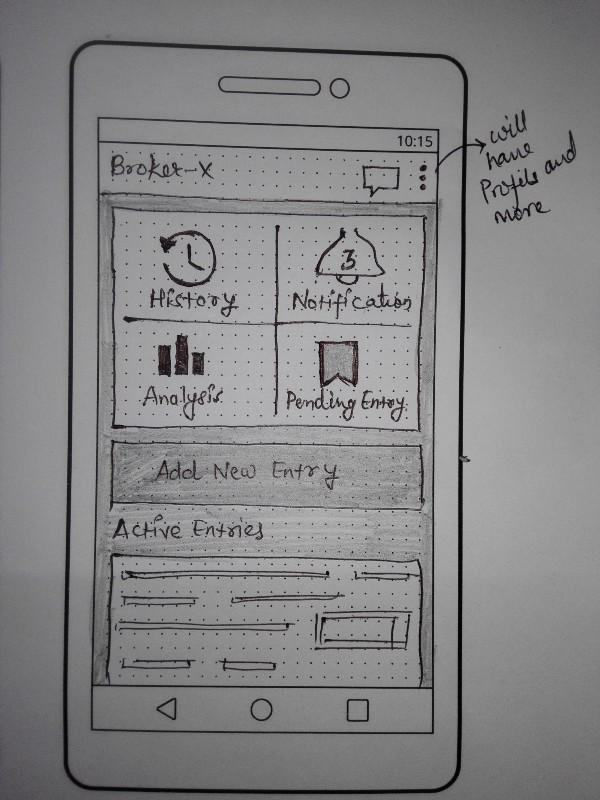 10:15
Broker-X
will
have
Profile and
more
3
History
Notification
Analysis
Pending Entry
Add New Entry
Active Entries